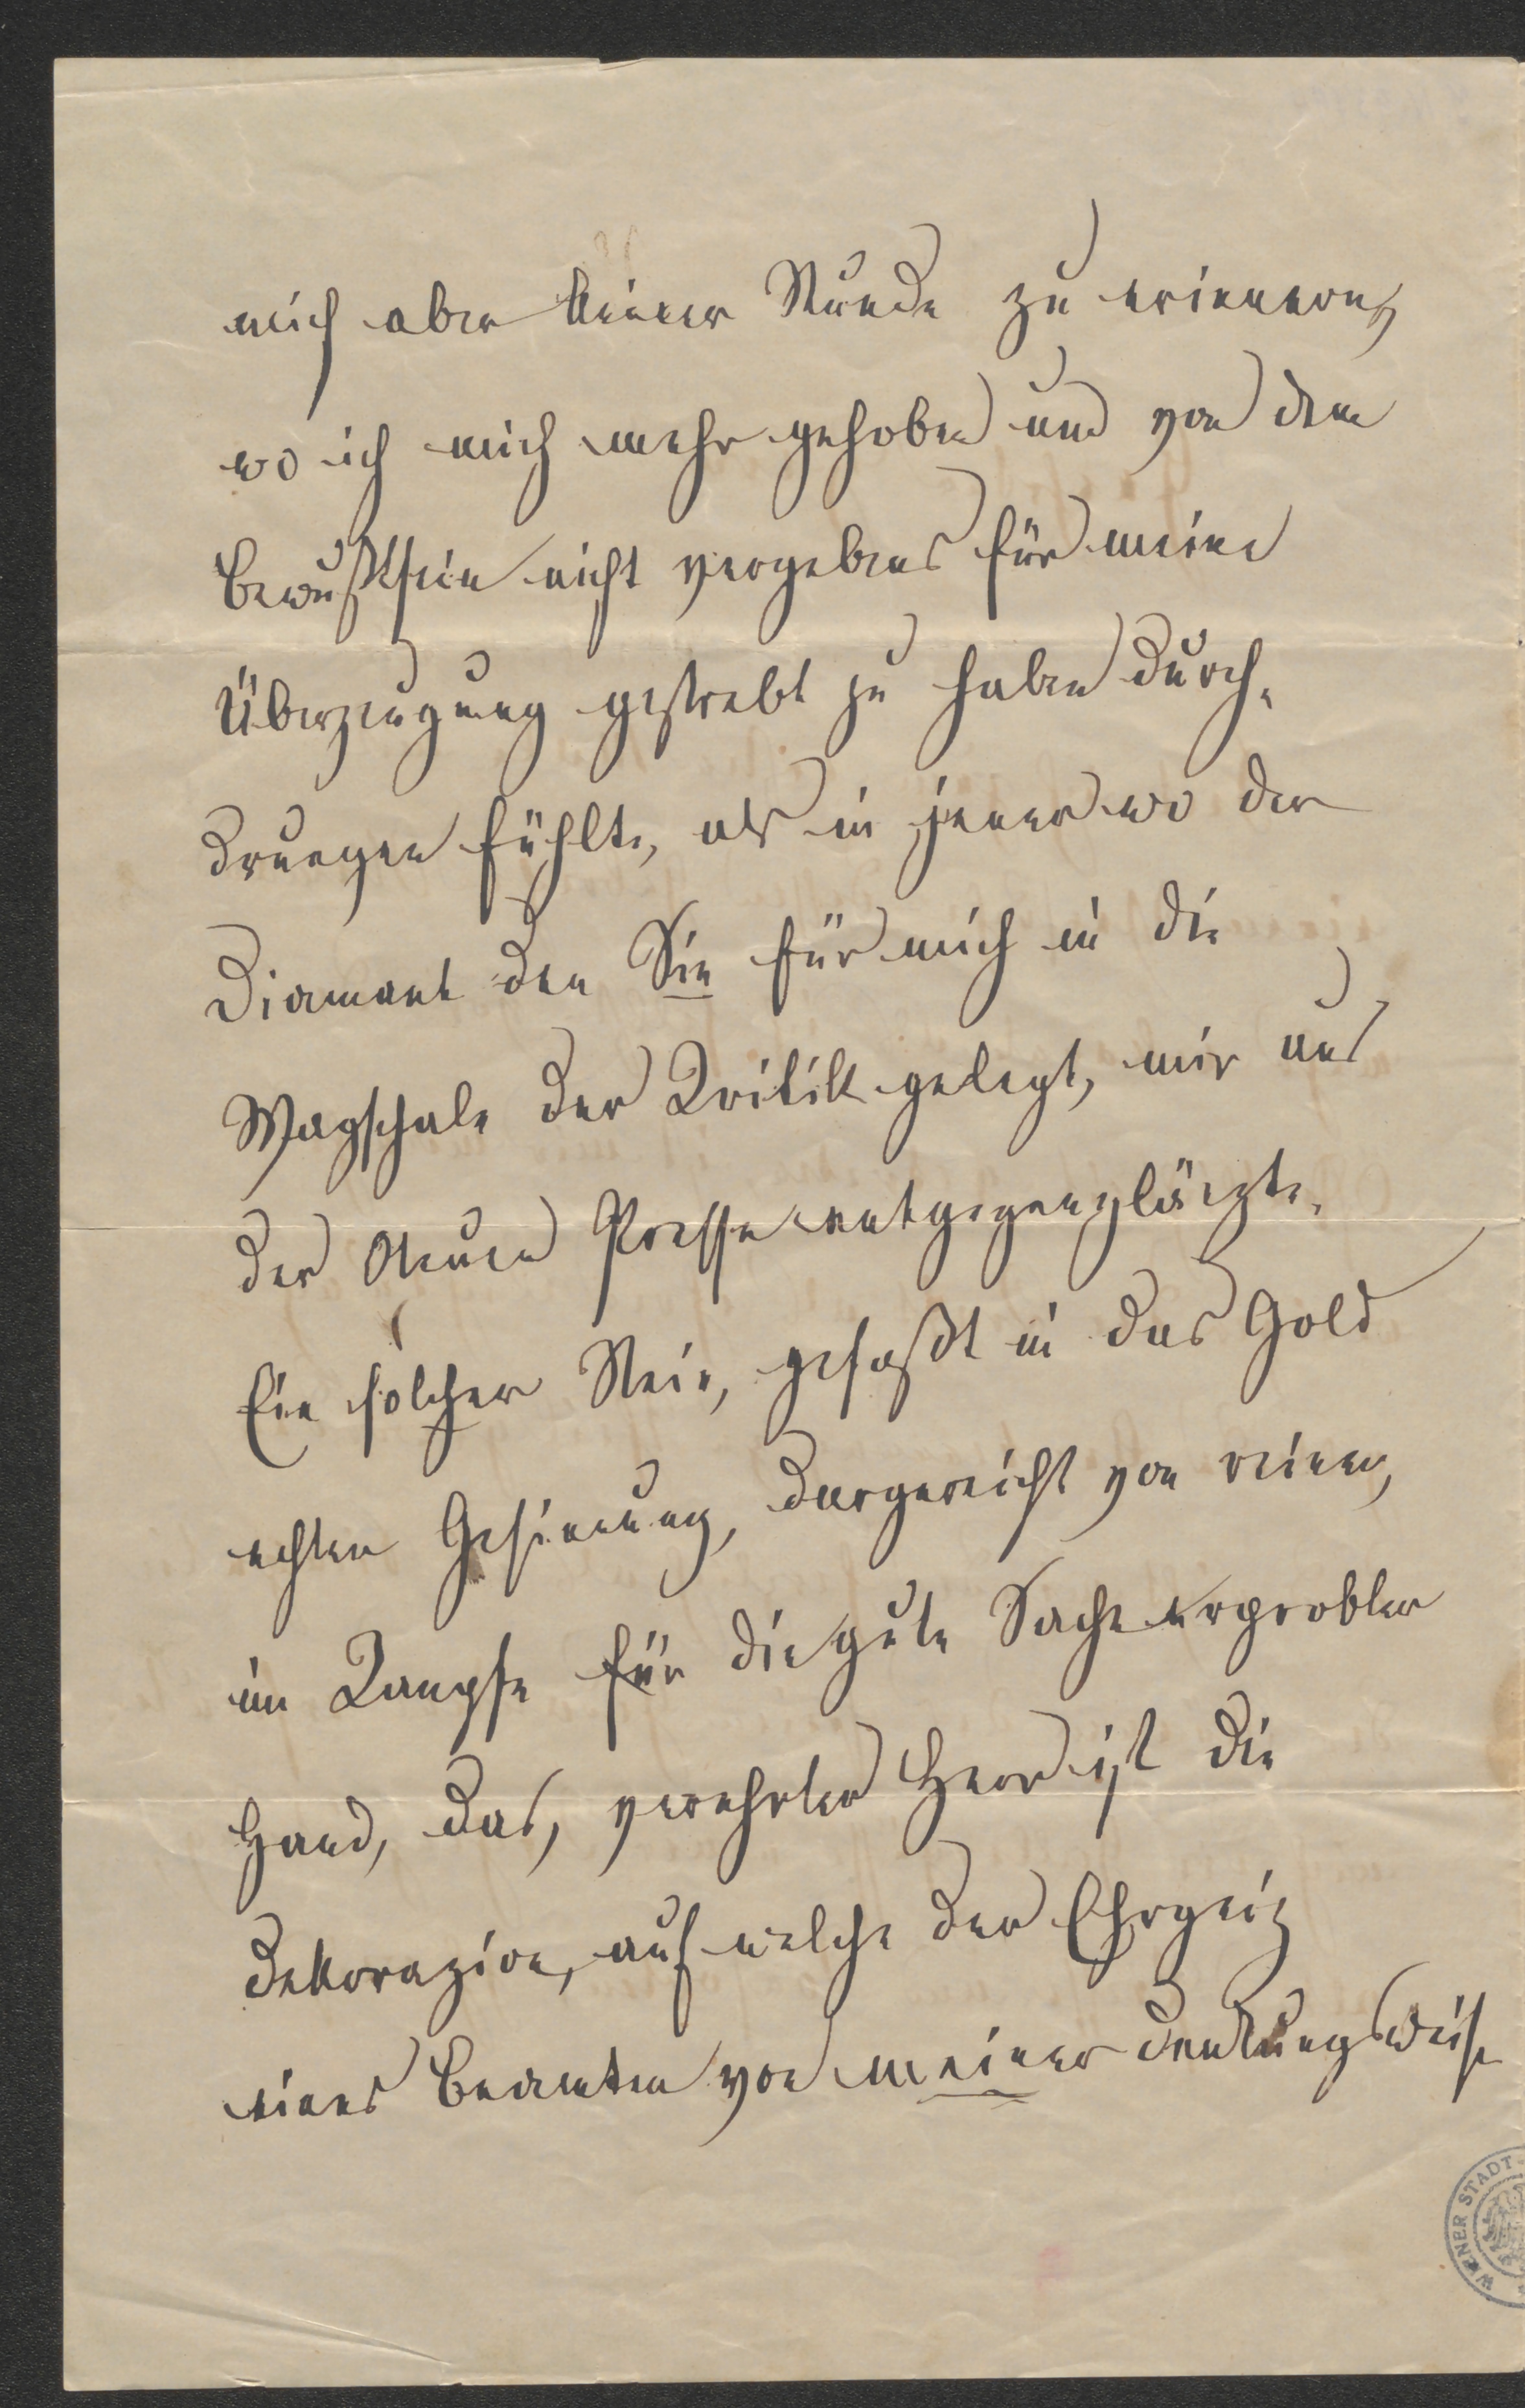 mich aber keiner Stunde zu erinnern,
wo ich mich mehr gehoben und von dem
Bewußtsein nicht vergebens für meine
Überzeugung gestrebt zu haben durch-
drungen fühlte, als in jener wo der
Diamant den Sie für mich in die
Wagschale der Kritik gelegt, mir aus
der Neuen Presse entgegenglänzte.
Ein solcher Stein, gefaßt in das Gold
echter Gesinnung, dargereicht von reiner,
im Kampfe für die gute Sache erprobter
Hand, das, verehrter Herr ist die
Dekorazion, auf welche der Ehrgeiz
eines Beamten von meiner Denkungsweise
WIENER STADT-